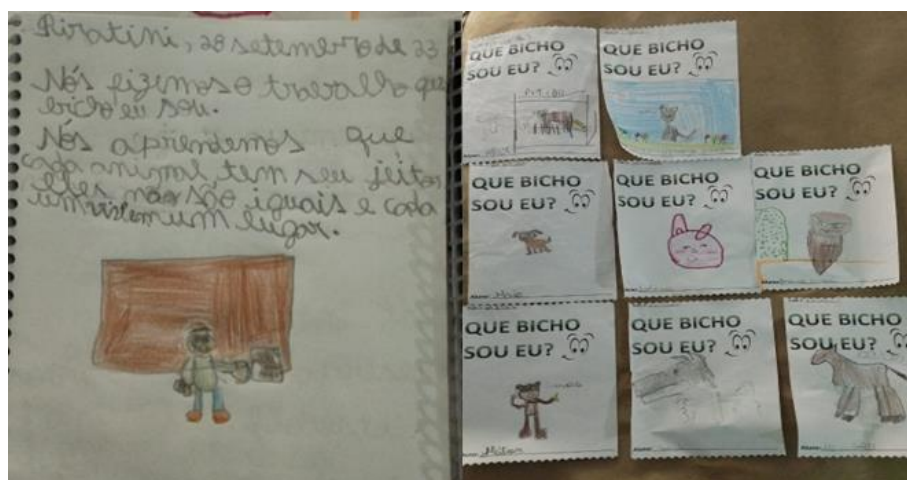 Piratini, 28 setembro de 23
Nós fizemos o trabalho que
bicho eu sou.
Nós aprendemos que
cada animal tem seu jeito
eles não são iguais e cada
um vive em um lugar.
QUE BICHO
SOU EU?
QUE BICHO
SOU EU?
QUE BICHO
SOU EU?
QUE BICHO
SOU EU?
QUE BICHO
SOU EU?
QUE BICHO
SOU EU?
QUE BICHO
SOU EU?
QUE BICHO
SOU EU?